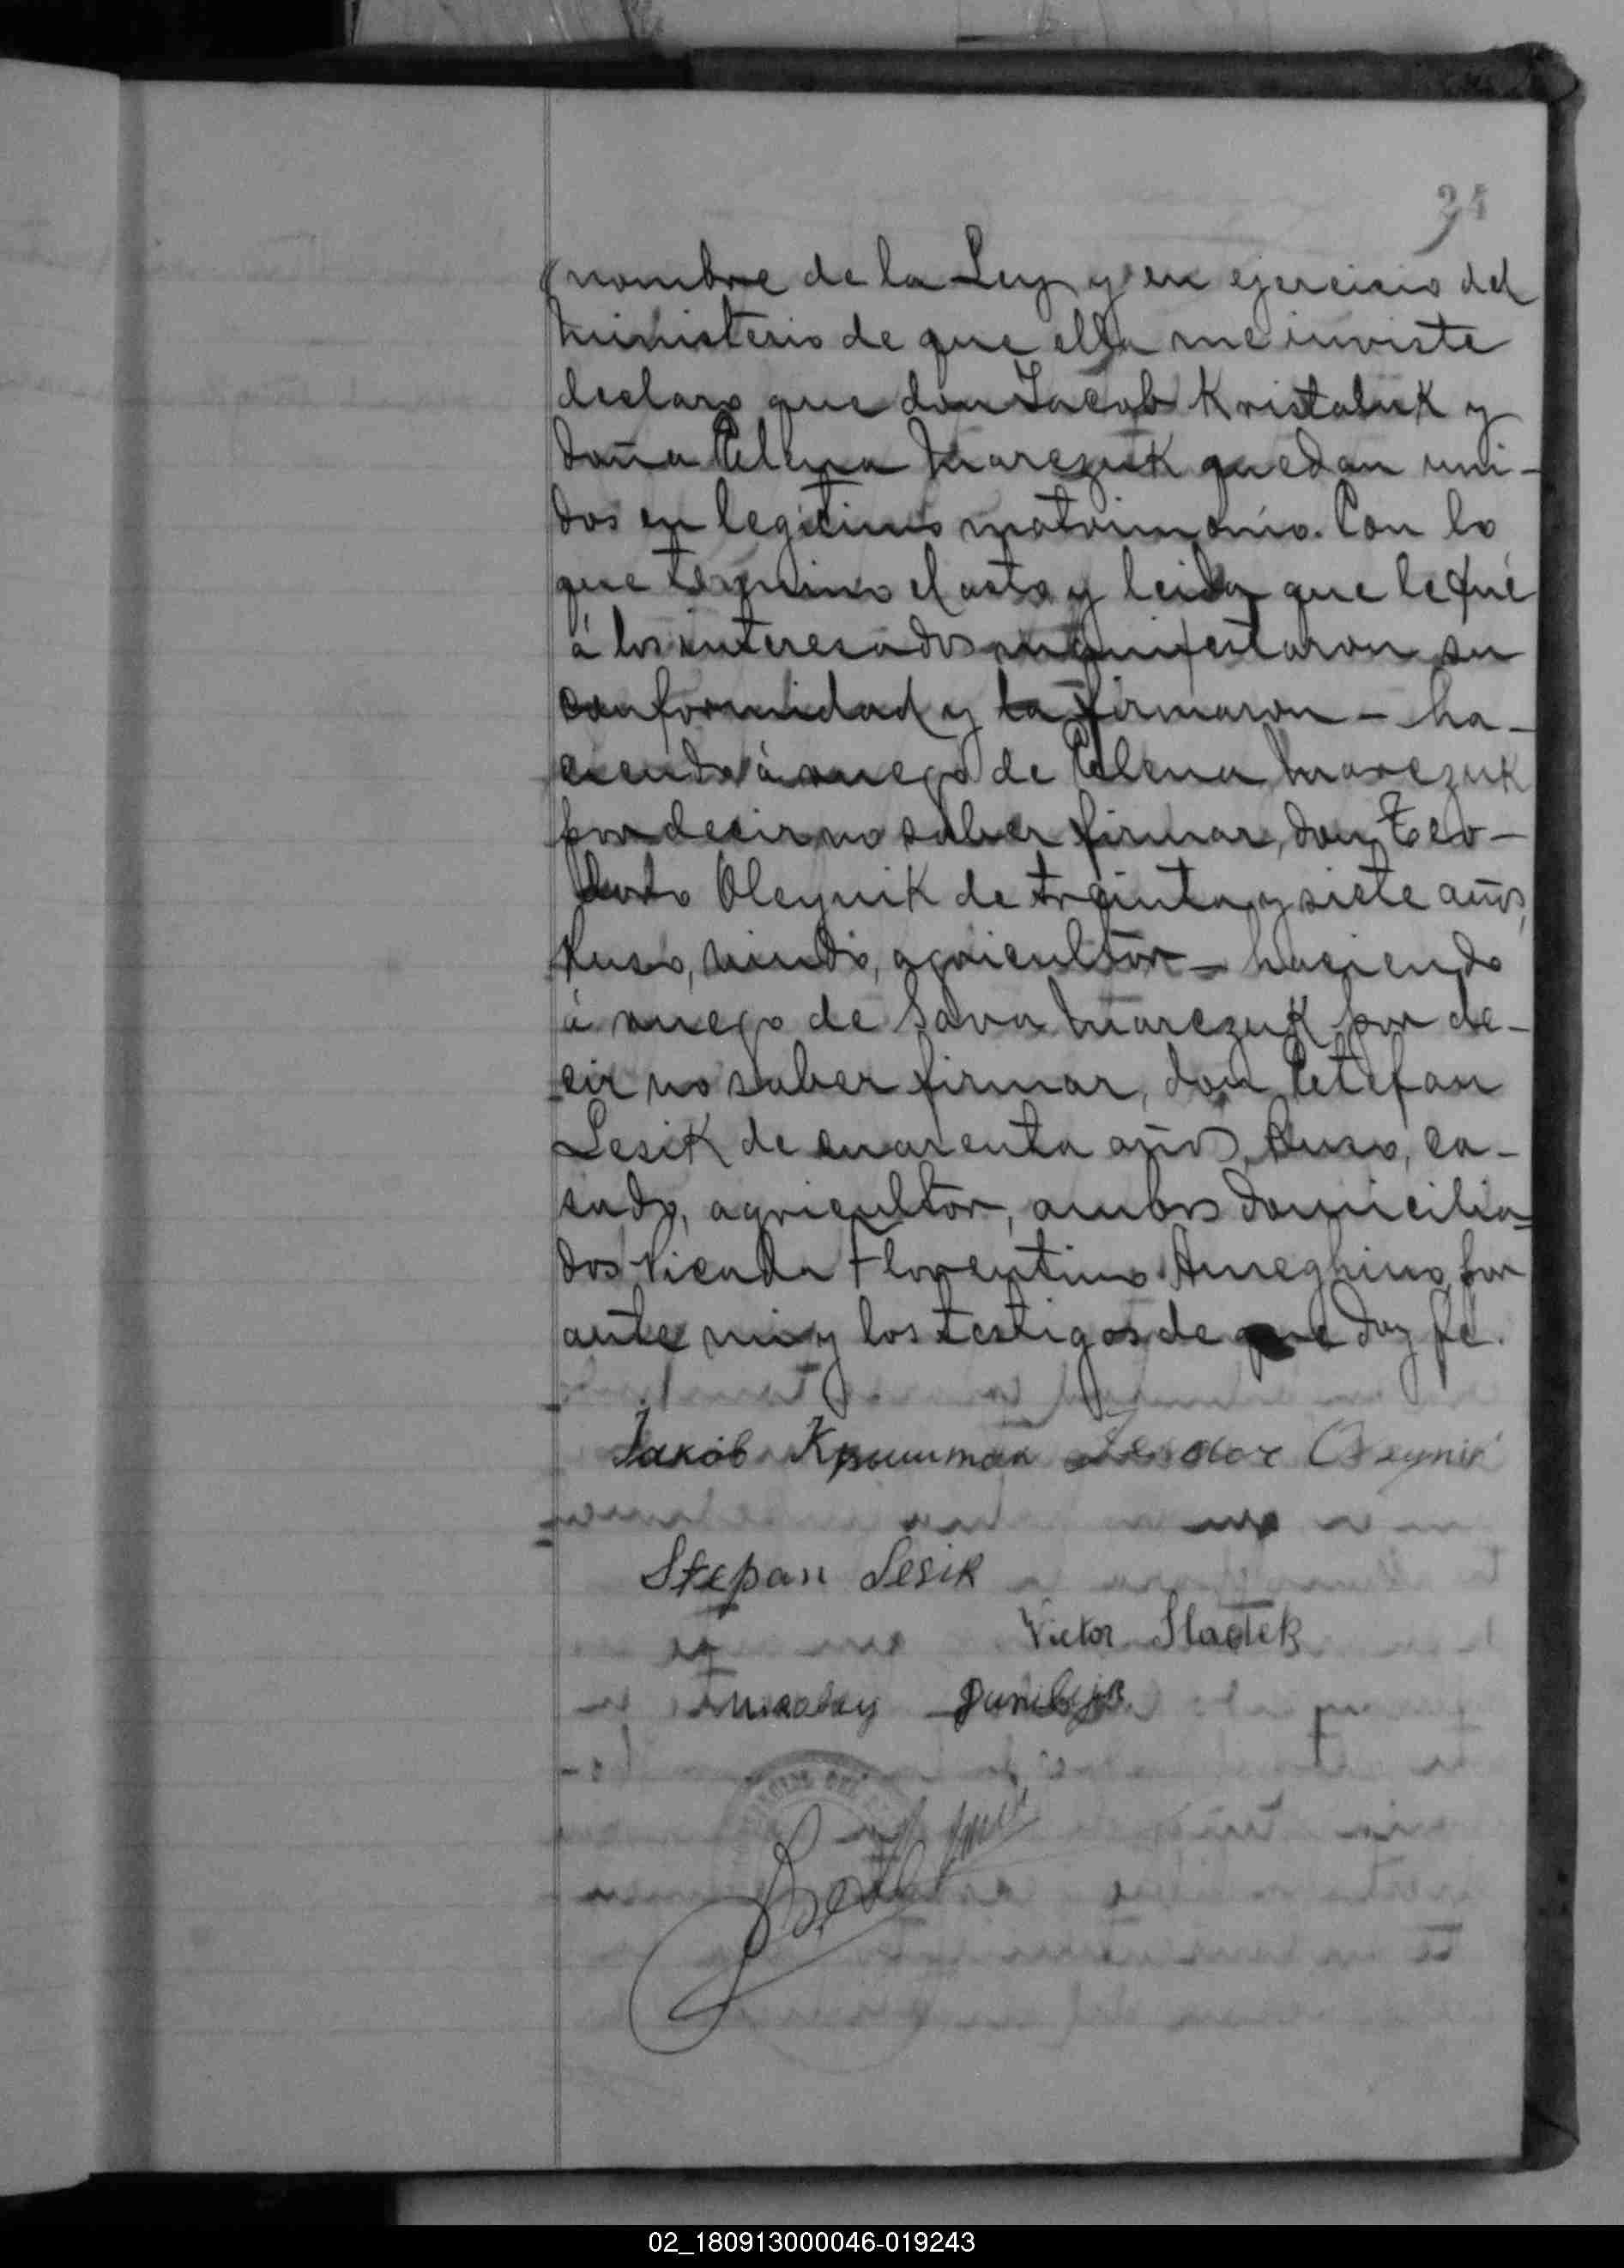 34
nombre de la Ley y en ejercicio del
ministerio de que ella me inviste
declaro que don Jacob Kristaluk y
doña Elena Marczuk quedan uni-
dos en legítimo matrimonio. Con lo
que terminó el acto y leida que le fué
á los interesados manifestaron su
conformidad y la firmaron - ha-
ciendo á ruego de Elena Marczuk
por decir no saber firmar, don Teo-
doro Oleynik de treinta y siete años,
Ruso, viudo, agricultor - haciendo
á ruego de Sava Marczuk por de-
cir no saber firmar, don Estefan
Lesik de cuarenta años, Ruso, ca-
sado, agricultor, ambos domicilia-
dos Picada Florentino Ameghino, por
ante mi y los testigos de que doy fé.
Jaков Криштал Oleynik
Stepan Lesik
Victor Sladek
02_180913000046-019243